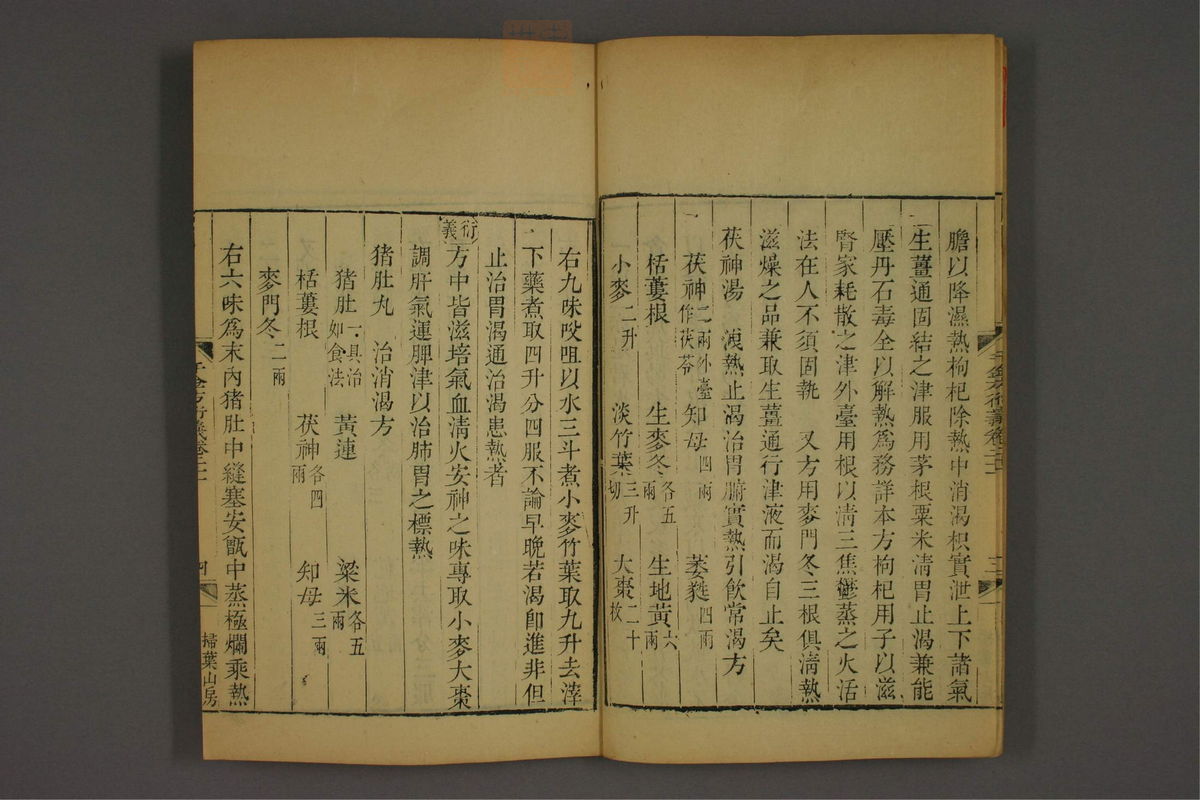 膽以降濕熱枸杞除熱中消渴枳實泄上下諸氣
生薑通固結之津服用茅根粟米清胃止渴兼能
壓丹石毒全以解熱為務詳本方枸杞用子以滋
腎家耗散之津外臺用根以清三焦鬱蒸之火活
法在人不須固執 又方用麥門冬三根俱清熱
滋燥之品兼取生薑通行津液而渴自止矣
茯神湯 洩熱止渴治胃腑實熱引飲常渴方
茯神二兩外臺作茯苓 知母四兩 萎蕤四兩
栝蔞根 生麥冬各五兩 生地黃六兩
小麥二升 淡竹葉三升切 大棗二十枚
右九味㕮咀以水三斗煮小麥竹葉取九升去滓
下藥煮取四升分四服不論早晚若渴卽進非但
止治胃渴通治渴患熱者
衍義方中皆滋培氣血清火安神之味專取小麥大棗
調肝氣運脾津以治肺胃之標熱
猪肚丸 治消渴方
猪肚一具治如食法 黃連 粱米各五兩
栝蔞根 茯神各四兩 知母三兩
麥門冬二兩
右六味為末內猪肚中縫塞安甑中蒸極爛乘熱
掃葉山房